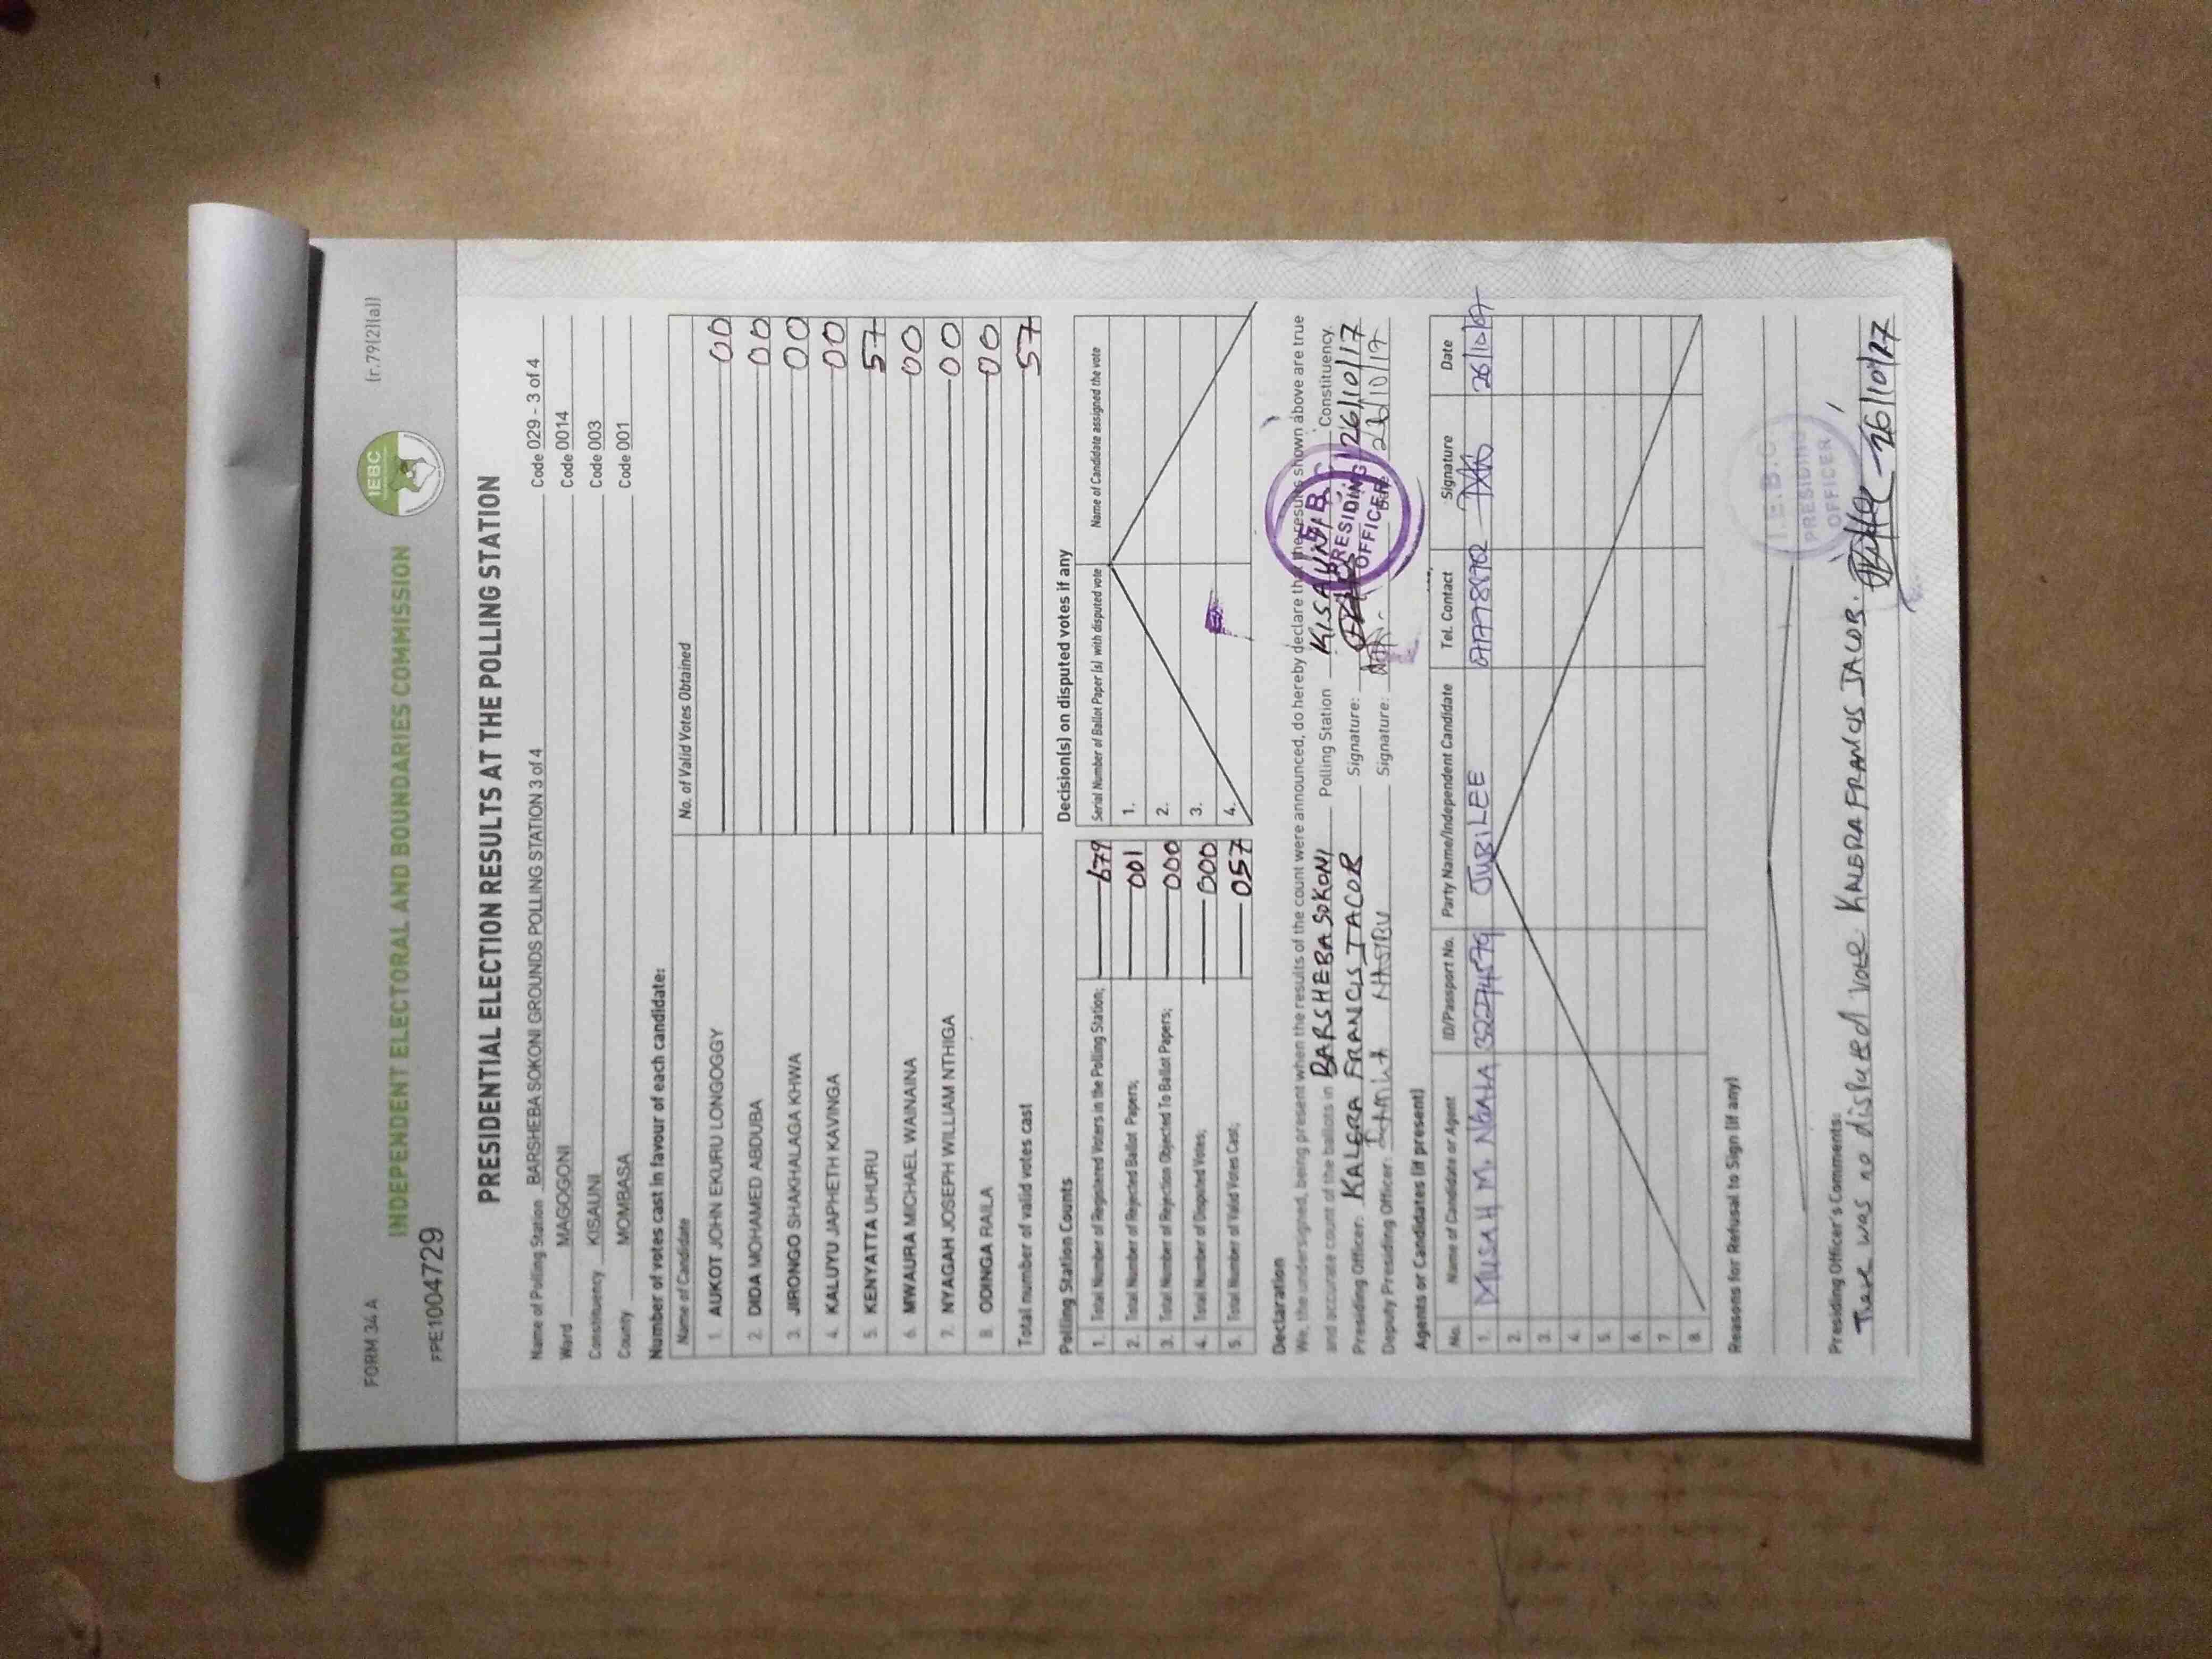 FORM 34 A
(r.79(2)(a))
IEBC
INDEPENDENT ELECTORAL AND BOUNDARIES COMMISSION
FPE1004729
PRESIDENTIAL ELECTION RESULTS AT THE POLLING STATION
Name of Polling Station BARSHEBA SOKONI GROUNDS POLLING STATION 3 of 4 Code 029 - 3 of 4
Ward MAGOGONI Code 0014
Constituency KISAUNI Code 003
County MOMBASA Code 001
Number of votes cast in favour of each candidate:
Name of Candidate No. of Valid Votes Obtained
1. AUKOT JOHN EKURU LONGOGGY 00
2. DIDA MOHAMED ABDUBA 00
3. JIRONGO SHAKHALAGA KHWA 00
4. KALUYU JAPHETH KAVINGA 00
5. KENYATTA UHURU 57
6. MWAURA MICHAEL WAINAINA 00
7. NYAGAH JOSEPH WILLIAM NTHIGA 00
8. ODINGA RAILA 00
Total number of valid votes cast 57
Polling Station Counts
1. Total Number of Registered Voters in the Polling Station; 679
2. Total Number of Rejected Ballot Papers; 001
3. Total Number of Rejection Objected To Ballot Papers; 000
4. Total Number of Disputed Votes; 000
5. Total Number of Valid Votes Cast; 057
Decision(s) on disputed votes if any
Serial Number of Ballot Paper (s) with disputed vote Name of Candidate assigned the vote
1.
2.
3.
4.
Declaration
We, the undersigned, being present when the results of the count were announced, do hereby declare that the results shown above are true
and accurate count of the ballots in BARSHEBA SOKONI Polling Station KISAUNI Constituency.
Presiding Officer: KALERA FRANCIS JACOB Signature: 26/10/17
Deputy Presiding Officer: Signature: Date 26/10/17
I.E.B.C
PRESIDING
OFFICER
Agents or Candidates (if present)
No. Name of Candidate or Agent ID/Passport No. Party Name/Independent Candidate Tel. Contact Signature Date
1. MUSAH M. NGALA JUBILEE 26/10/17
2.
3.
4.
5.
6.
7.
8.
Reasons for Refusal to Sign (if any)
I.E.B.C
PRESIDING
OFFICER
Presiding Officer's Comments:
There was no disputed vote. KALERA FRANCIS JACOB. 26/10/17